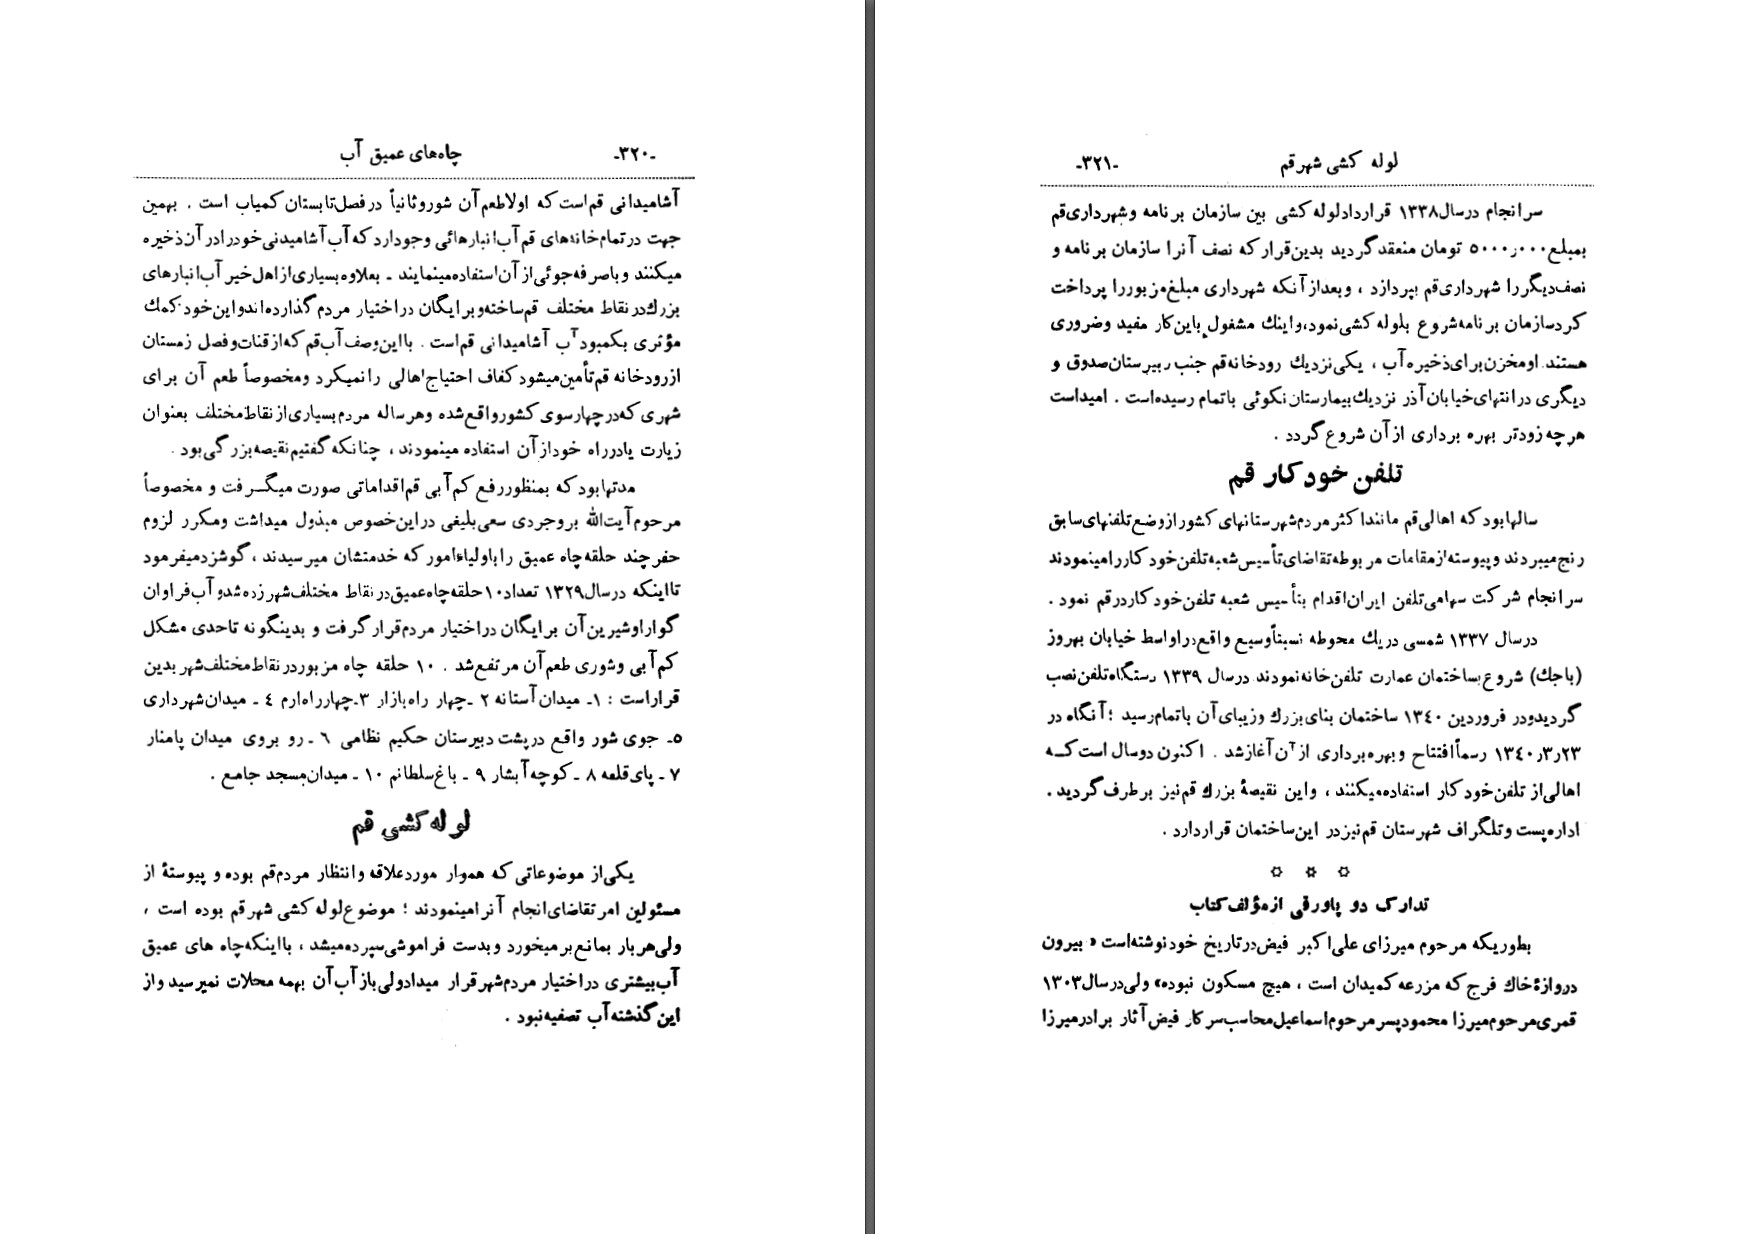 -۳۲۰- چاه‌های عمیق آب
آشامیدانی قم است که اولا طعم آن شور و ثانیاً در فصل تابستان کمیاب است . بهمین
جهت در تمام خانه‌های قم آب‌انبارهائی وجود دارد که آب آشامیدنی خود را در آن ذخیره
میکنند و با صرفه‌جوئی از آن استفاده مینمایند ـ بعلاوه بسیاری از اهل خیر آب انبارهای
بزرك در نقاط مختلف قم ساخته و برایگان در اختیار مردم گذارده‌اند و این خود کمك
مؤثری بکمبود آب آشامیدانی قم است . با این وصف آب قم که از قنات و فصل زمستان
از رودخانه قم تأمین میشود کفاف احتیاج اهالی را نمیکرد و مخصوصاً طعم آن برای
شهری که در چهار سوی کشور واقع شده و هر ساله مردم بسیاری از نقاط مختلف بعنوان
زیارت یا در راه خود از آن استفاده مینمودند ، چنانکه گفتیم نقیصه بزرگی بود .
مدتها بود که بمنظور رفع کم آبی قم اقداماتی صورت میگـرفت و مخصوصاً
مرحوم آیت‌الله بروجردی سعی بلیغی در این خصوص مبذول میداشت ومکرر لزوم
حفر چند حلقه چاه عمیق را باولیاء امور که خدمتشان میرسیدند ، گوشزد میفرمود
تا اینکه در سال ۱۳۲۹ تعداد ۱۰ حلقه چاه عمیق در نقاط مختلف شهر زده شد و آب فراوان
گوارا و شیرین آن برایگان در اختیار مردم قرار گرفت و بدینگونه تا حدی مشکل
کم آبی و شوری طعم آن مرتفع شد . ۱۰ حلقه چاه مزبور در نقاط مختلف شهر بدین
قرار است : ۱ـ میدان آستانه ۲ ـ چهار راه بازار ۳ـ چهار راه ارم ٤ ـ میدان شهرداری
٥ـ جوی شور واقع در پشت دبیرستان حکیم نظامی ٦ ـ رو بروی میدان پامنار
۷ ـ پای قلعه ۸ ـ کوچه آبشار ۹ ـ باغ سلطانم ۱۰ ـ میدان مسجد جامع .
لوله کشی قم
یکی از موضوعاتی که هموار مورد علاقه و انتظار مردم قم بوده و پیوستهٔ از
مسئولین امر تقاضای انجام آنرا مینمودند ؛ موضوع لوله کشی شهر قم بوده است ،
ولی هر بار بمانع بر میخورد و بدست فراموشی سپرده میشد ، با اینکه چاه های عمیق
آب بیشتری در اختیار مردم شهر قرار میداد ولی باز آب آن بهمه محلات نمیرسید و از
این گذشته آب تصفیه نبود .
لوله کشی شهر قم -۳۲۱-
سرانجام در سال ۱۳۳۸ قرارداد لوله کشی بین سازمان برنامه و شهرداری قم
بمبلغ ٥۰۰۰ر۰۰۰ تومان منعقد گردید بدین قرار که نصف آنرا سازمان برنامه و
نصف دیگر را شهرداری قم بپردازد ، و بعد از آنکه شهرداری مبلغ مزبور را پرداخت
کرد سازمان برنامه شروع بلوله کشی نمود، و اینك مشغول باین کار مفید و ضروری
هستند. او مخزن برای ذخیره آب ، یکی نزدیك رودخانه قم جنب ربیرستان صدوق و
دیگری در انتهای خیابان آذر نزدیك بیمارستان نکوئی باتمام رسیده است . امید است
هر چه زودتر بهره برداری از آن شروع گردد .
تلفن خودکار قم
سالها بود که اهالی قم مانند اکثر مردم شهرستانهای کشور از وضع تلفنهای سابق
رنج میبردند و پیوسته از مقامات مربوطه تقاضای تأسیس شعبه تلفن خود کار را مینمودند
سرانجام شرکت سهامی تلفن ایران اقدام بتأسیس شعبه تلفن خود کار در قم نمود .
در سال ۱۳۳۷ شمسی در یك محوطه نسبتاً وسیع واقع در اواسط خیابان بهروز
(باجك) شروع بساختمان عمارت تلفن خانه نمودند در سال ۱۳۳۹ رستگاه تلفن نصب
گردید و در فروردین ۱۳٤۰ ساختمان بنای بزرك و زیبای آن باتمام رسید ؛ آنگاه در
۲۳ر۳ر۱۳٤۰ رسماً افتتاح و بهره برداری از آن آغاز شد . اکنون دو سال است کـه
اهالی از تلفن خود کار استفاده میکنند ، و این نقیصهٔ بزرك قم نیز برطرف گردید .
اداره پست و تلگراف شهرستان قم نیز در این ساختمان قرار دارد .
✡ ✡ ✡
تدارک دو پاورقی از مؤلف کتاب
بطوریکه مرحوم میرزای علی اکبر فیض در تاریخ خود نوشته است « بیرون
دروازهٔ خاك فرج که مزرعه کمیدان است ، هیچ مسکون نبوده» ولی در سال ۱۳۰۳
قمری مرحوم میرزا محمود پسر مرحوم اسماعیل محاسب سرکار فیض آثار برادر میرزا